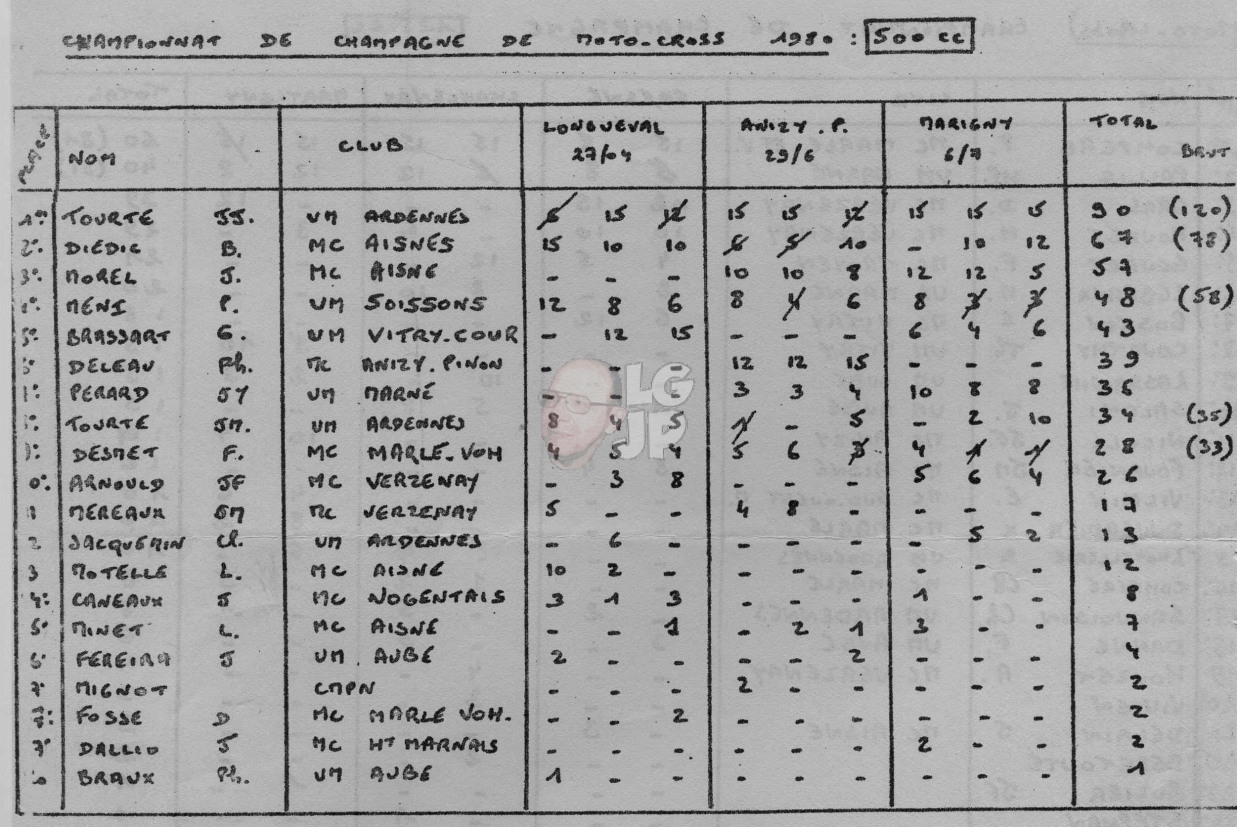 CHAMPIONNAT DE CHAMPAGNE DE MOTO-CROSS 1980 : 500 cc
PLACE NOM CLUB LONGUEVAL 27/04 ANIZY.P. 29/6 MARIGNY 6/7 TOTAL BRUT
1er TOURTE JJ. UM ARDENNES 6 15 12 15 15 12 15 15 15 90 (120)
2° DIEDIC B. MC AISNES 15 10 10 6 5 10 - 10 12 67 (78)
3° MOREL J. MC AISNE - - - 10 10 8 12 12 5 57
MENI P. UM SOISSONS 12 8 6 8 4 6 8 3 3 48 (58)
5° BRASSART G. UM VITRY.COUR - 12 15 - - - 6 4 6 43
DELEAU Ph. MC ANIZY.PINON - - - 12 12 15 - - - 39
PERARD JY UM MARNE - - - 3 3 4 10 8 8 36
TOURTE JM. UM ARDENNES 8 4 5 1 - 5 - 2 10 34 (35)
DESMET F. MC MARLE.VOH 4 5 4 5 6 3 4 1 1 28 (33)
0° ARNOULD JF MC VERZENAY - 3 8 - - - 5 6 4 26
1 MEREAUX JM MC VERZENAY 5 - - 4 8 - - - - 17
2 JACQUEMIN Cl. UM ARDENNES - 6 - - - - - 5 2 13
3 MOTELLE L. MC AISNE 10 2 - - - - - - - 12
4° CANEAUX J MC NOGENTAIS 3 1 3 - - - 1 - - 8
5° MINET L. MC AISNE - - 1 - 2 1 3 - - 7
6° FEREIRA J UM AUBE 2 - - - - 2 - - - 4
7° MIGNOT CMPN - - - 2 - - - - - 2
7° FOSSE D MC MARLE VOH. - - 2 - - - - - - 2
7° DALLIO J MC HT MARNAIS - - - - - - 2 - - 2
BRAUX Ph. UM AUBE 1 - - - - - - - - 1
LG
JP